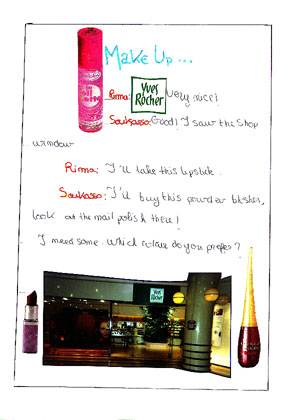 Make Up ...
Rima: YVES ROCHER very nice!
Soukasso: Good! I saw the shop
window
Rima: I'll take this lipstick.
Soukasso: I'll buy this powder blusher,
look at the nail polish there!
I need some. Which colour do you prefer?
YVES ROCHER